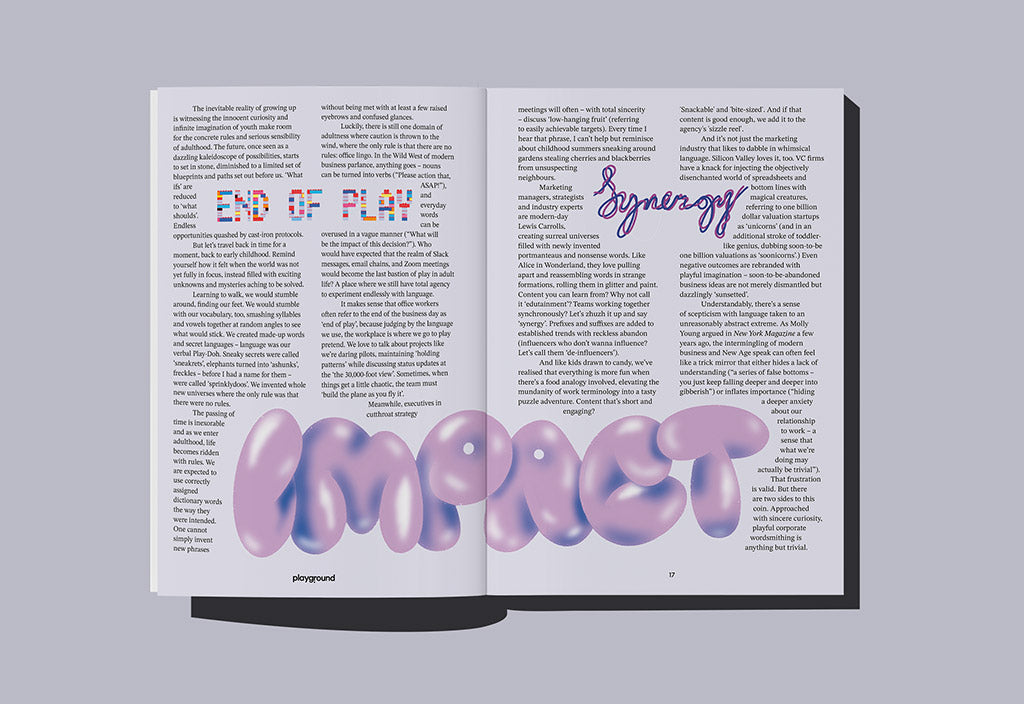 The inevitable reality of growing up
is witnessing the innocent curiosity and
infinite imagination of youth make room
for the concrete rules and serious sensibility
of adulthood. The future, once seen as a
dazzling kaleidoscope of possibilities, starts
to set in stone, diminished to a limited set of
blueprints and paths set out before us. ‘What
ifs’ are
reduced
to ‘what
shoulds’.
Endless
opportunities quashed by cast-iron protocols.
But let’s travel back in time for a
moment, back to early childhood. Remind
yourself how it felt when the world was not
yet fully in focus, instead filled with exciting
unknowns and mysteries aching to be solved.
Learning to walk, we would stumble
around, finding our feet. We would stumble
with our vocabulary, too, smashing syllables
and vowels together at random angles to see
what would stick. We created made-up words
and secret languages – language was our
verbal Play-Doh. Sneaky secrets were called
‘sneakrets’, elephants turned into ‘ashunks’,
freckles – before I had a name for them –
were called ‘sprinklydoos’. We invented whole
new universes where the only rule was that
there were no rules.
The passing of
time is inexorable
and as we enter
adulthood, life
becomes ridden
with rules. We
are expected to
use correctly
assigned
dictionary words
the way they
were intended.
One cannot
simply invent
new phrases
END OF PLAY
without being met with at least a few raised
eyebrows and confused glances.
Luckily, there is still one domain of
adultness where caution is thrown to the
wind, where the only rule is that there are no
rules: office lingo. In the Wild West of modern
business parlance, anything goes – nouns
can be turned into verbs (“Please action that,
ASAP!”),
and
everyday
words
can be
overused in a vague manner (“What will
be the impact of this decision?”). Who
would have expected that the realm of Slack
messages, email chains, and Zoom meetings
would become the last bastion of play in adult
life? A place where we still have total agency
to experiment endlessly with language.
It makes sense that office workers
often refer to the end of the business day as
‘end of play’, because judging by the language
we use, the workplace is where we go to play
pretend. We love to talk about projects like
we’re daring pilots, maintaining ‘holding
patterns’ while discussing status updates at
the ‘the 30,000-foot view’. Sometimes, when
things get a little chaotic, the team must
‘build the plane as you fly it’.
Meanwhile, executives in
cutthroat strategy
IMPACT
playground
meetings will often – with total sincerity
– discuss ‘low-hanging fruit’ (referring
to easily achievable targets). Every time I
hear that phrase, I can’t help but reminisce
about childhood summers sneaking around
gardens stealing cherries and blackberries
from unsuspecting
neighbours.
Marketing
managers, strategists
and industry experts
are modern-day
Lewis Carrolls,
creating surreal universes
filled with newly invented
portmanteaus and nonsense words. Like
Alice in Wonderland, they love pulling
apart and reassembling words in strange
formations, rolling them in glitter and paint.
Content you can learn from? Why not call
it ‘edutainment’? Teams working together
synchronously? Let’s zhuzh it up and say
‘synergy’. Prefixes and suffixes are added to
established trends with reckless abandon
(influencers who don’t wanna influence?
Let’s call them ‘de-influencers’).
And like kids drawn to candy, we’ve
realised that everything is more fun when
there’s a food analogy involved, elevating the
mundanity of work terminology into a tasty
puzzle adventure. Content that’s short and
engaging?
Synergy
‘Snackable’ and ‘bite-sized’. And if that
content is good enough, we add it to the
agency’s ‘sizzle reel’.
And it’s not just the marketing
industry that likes to dabble in whimsical
language. Silicon Valley loves it, too. VC firms
have a knack for injecting the objectively
disenchanted world of spreadsheets and
bottom lines with
magical creatures,
referring to one billion
dollar valuation startups
as ‘unicorns’ (and in an
additional stroke of toddler-
like genius, dubbing soon-to-be
one billion valuations as ‘soonicorns’.) Even
negative outcomes are rebranded with
playful imagination – soon-to-be-abandoned
business ideas are not merely dismantled but
dazzlingly ‘sunsetted’.
Understandably, there’s a sense
of scepticism with language taken to an
unreasonably abstract extreme. As Molly
Young argued in New York Magazine a few
years ago, the intermingling of modern
business and New Age speak can often feel
like a trick mirror that either hides a lack of
understanding (“a series of false bottoms –
you just keep falling deeper and deeper into
gibberish”) or inflates importance (“hiding
a deeper anxiety
about our
relationship
to work – a
sense that
what we’re
doing may
actually be trivial”).
That frustration
is valid. But there
are two sides to this
coin. Approached
with sincere curiosity,
playful corporate
wordsmithing is
anything but trivial.
17